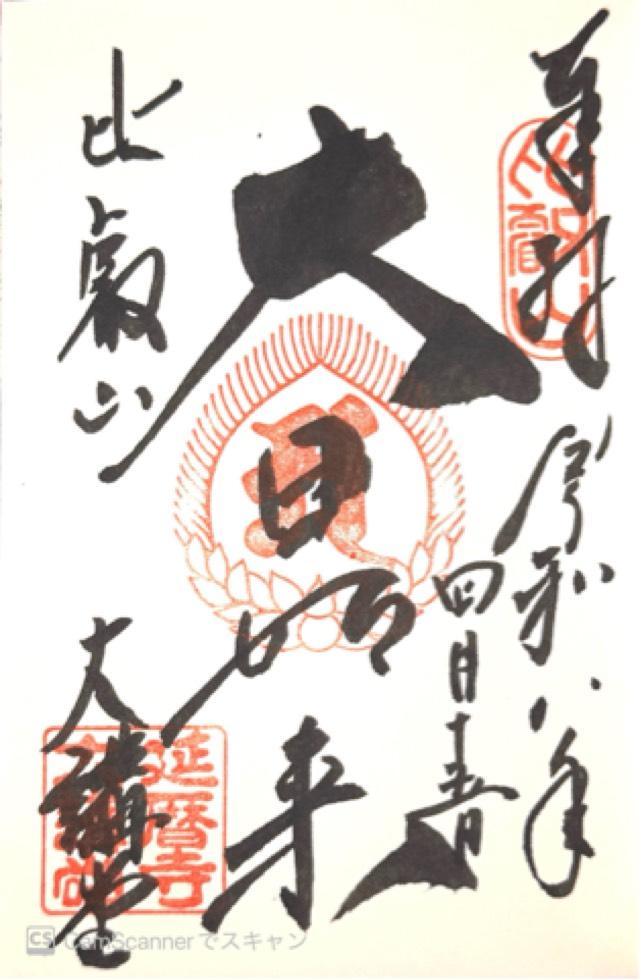 奉拝
比叡山
令和八年
四月十
大日如来
比叡山
大講堂
延暦寺
CS CamScannerでスキャン